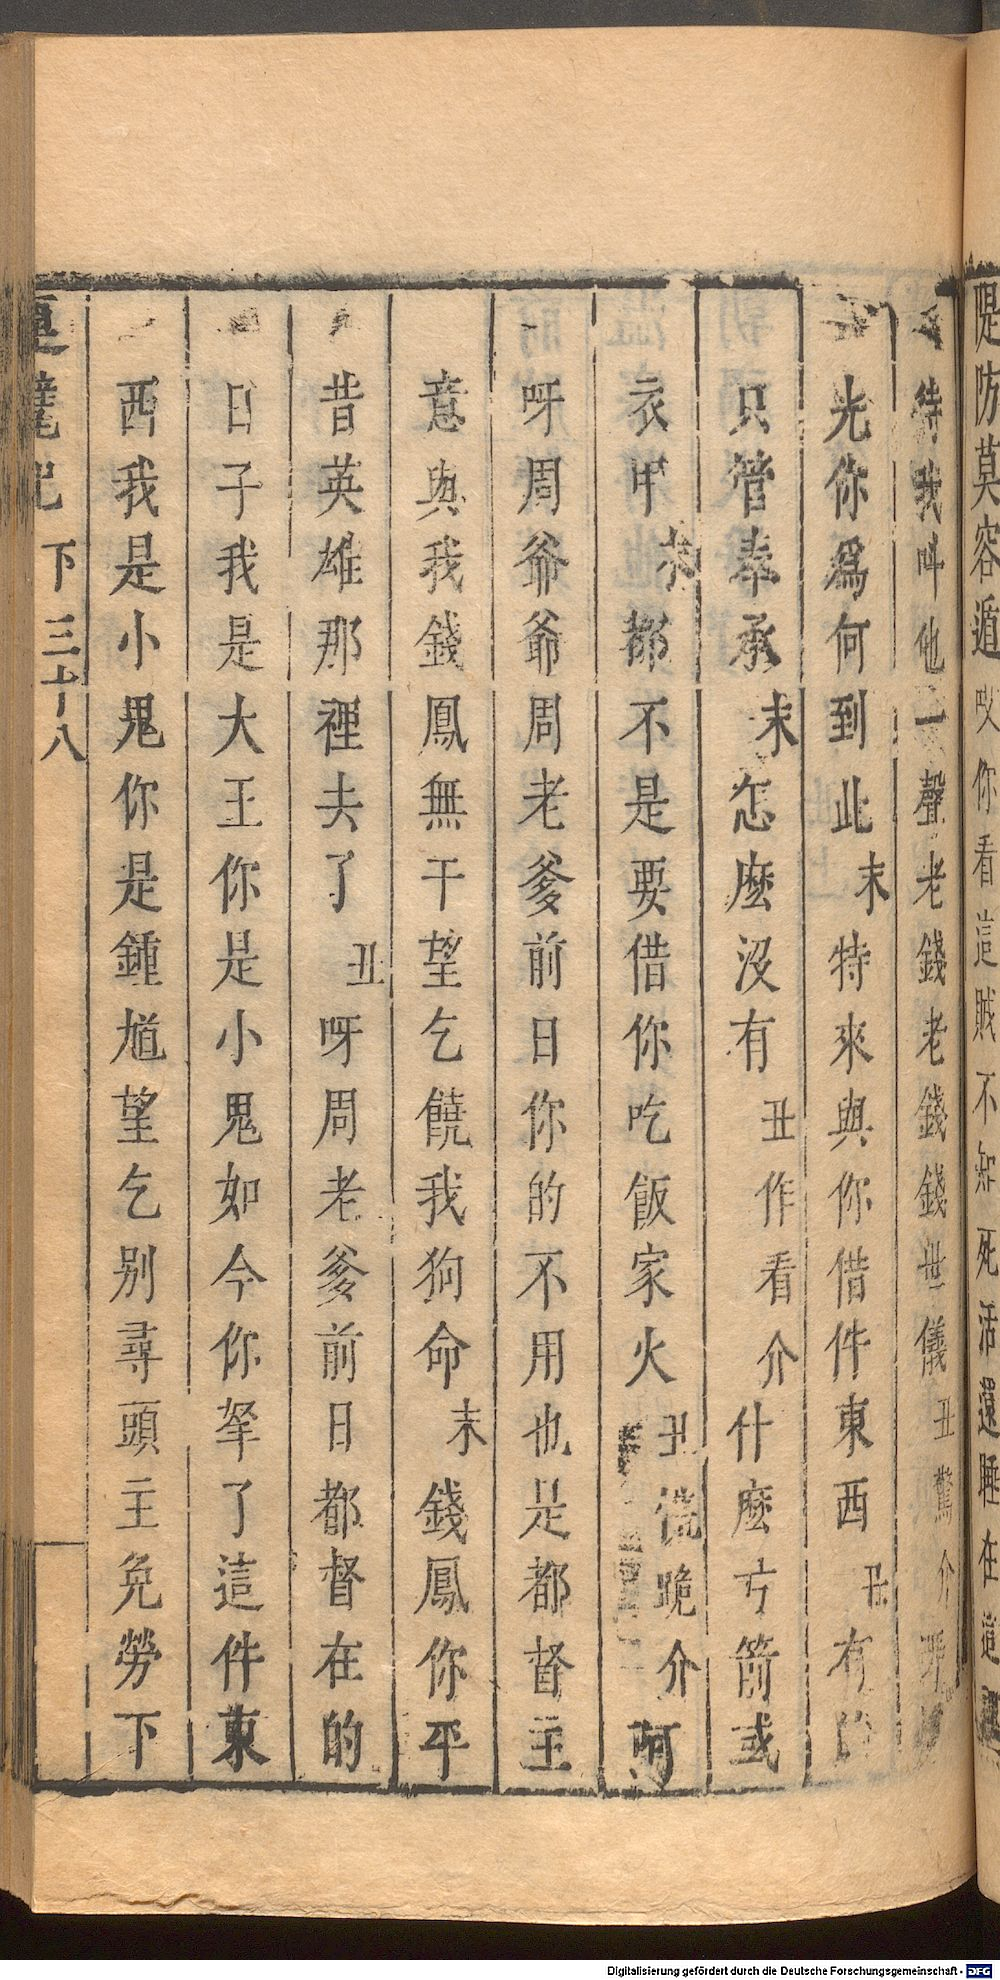 隄防莫容遁哎你看這賊不知死活還睡在這
待我叫他一聲老錢老錢錢世儀丑驚介呀
光你爲何到此末特來與你借件東西丑有的
只管奉承末怎麽沒有丑作看介什麽方箭或
衣甲末都不是要借你吃飯家火丑慌跪介阿
呀周爺爺周老爹前日你的不用也是都督主
意與我錢鳳無干望乞饒我狗命末錢鳳你平
昔英雄那裡去了丑呀周老爹前日都督在的
日子我是大王你是小鬼如今你拏了這件東
西我是小鬼你是鍾馗望乞别尋頭主免勞下
運甓記 下 三十八
Digitalisierung gefördert durch die Deutsche Forschungsgemeinschaft - DFG